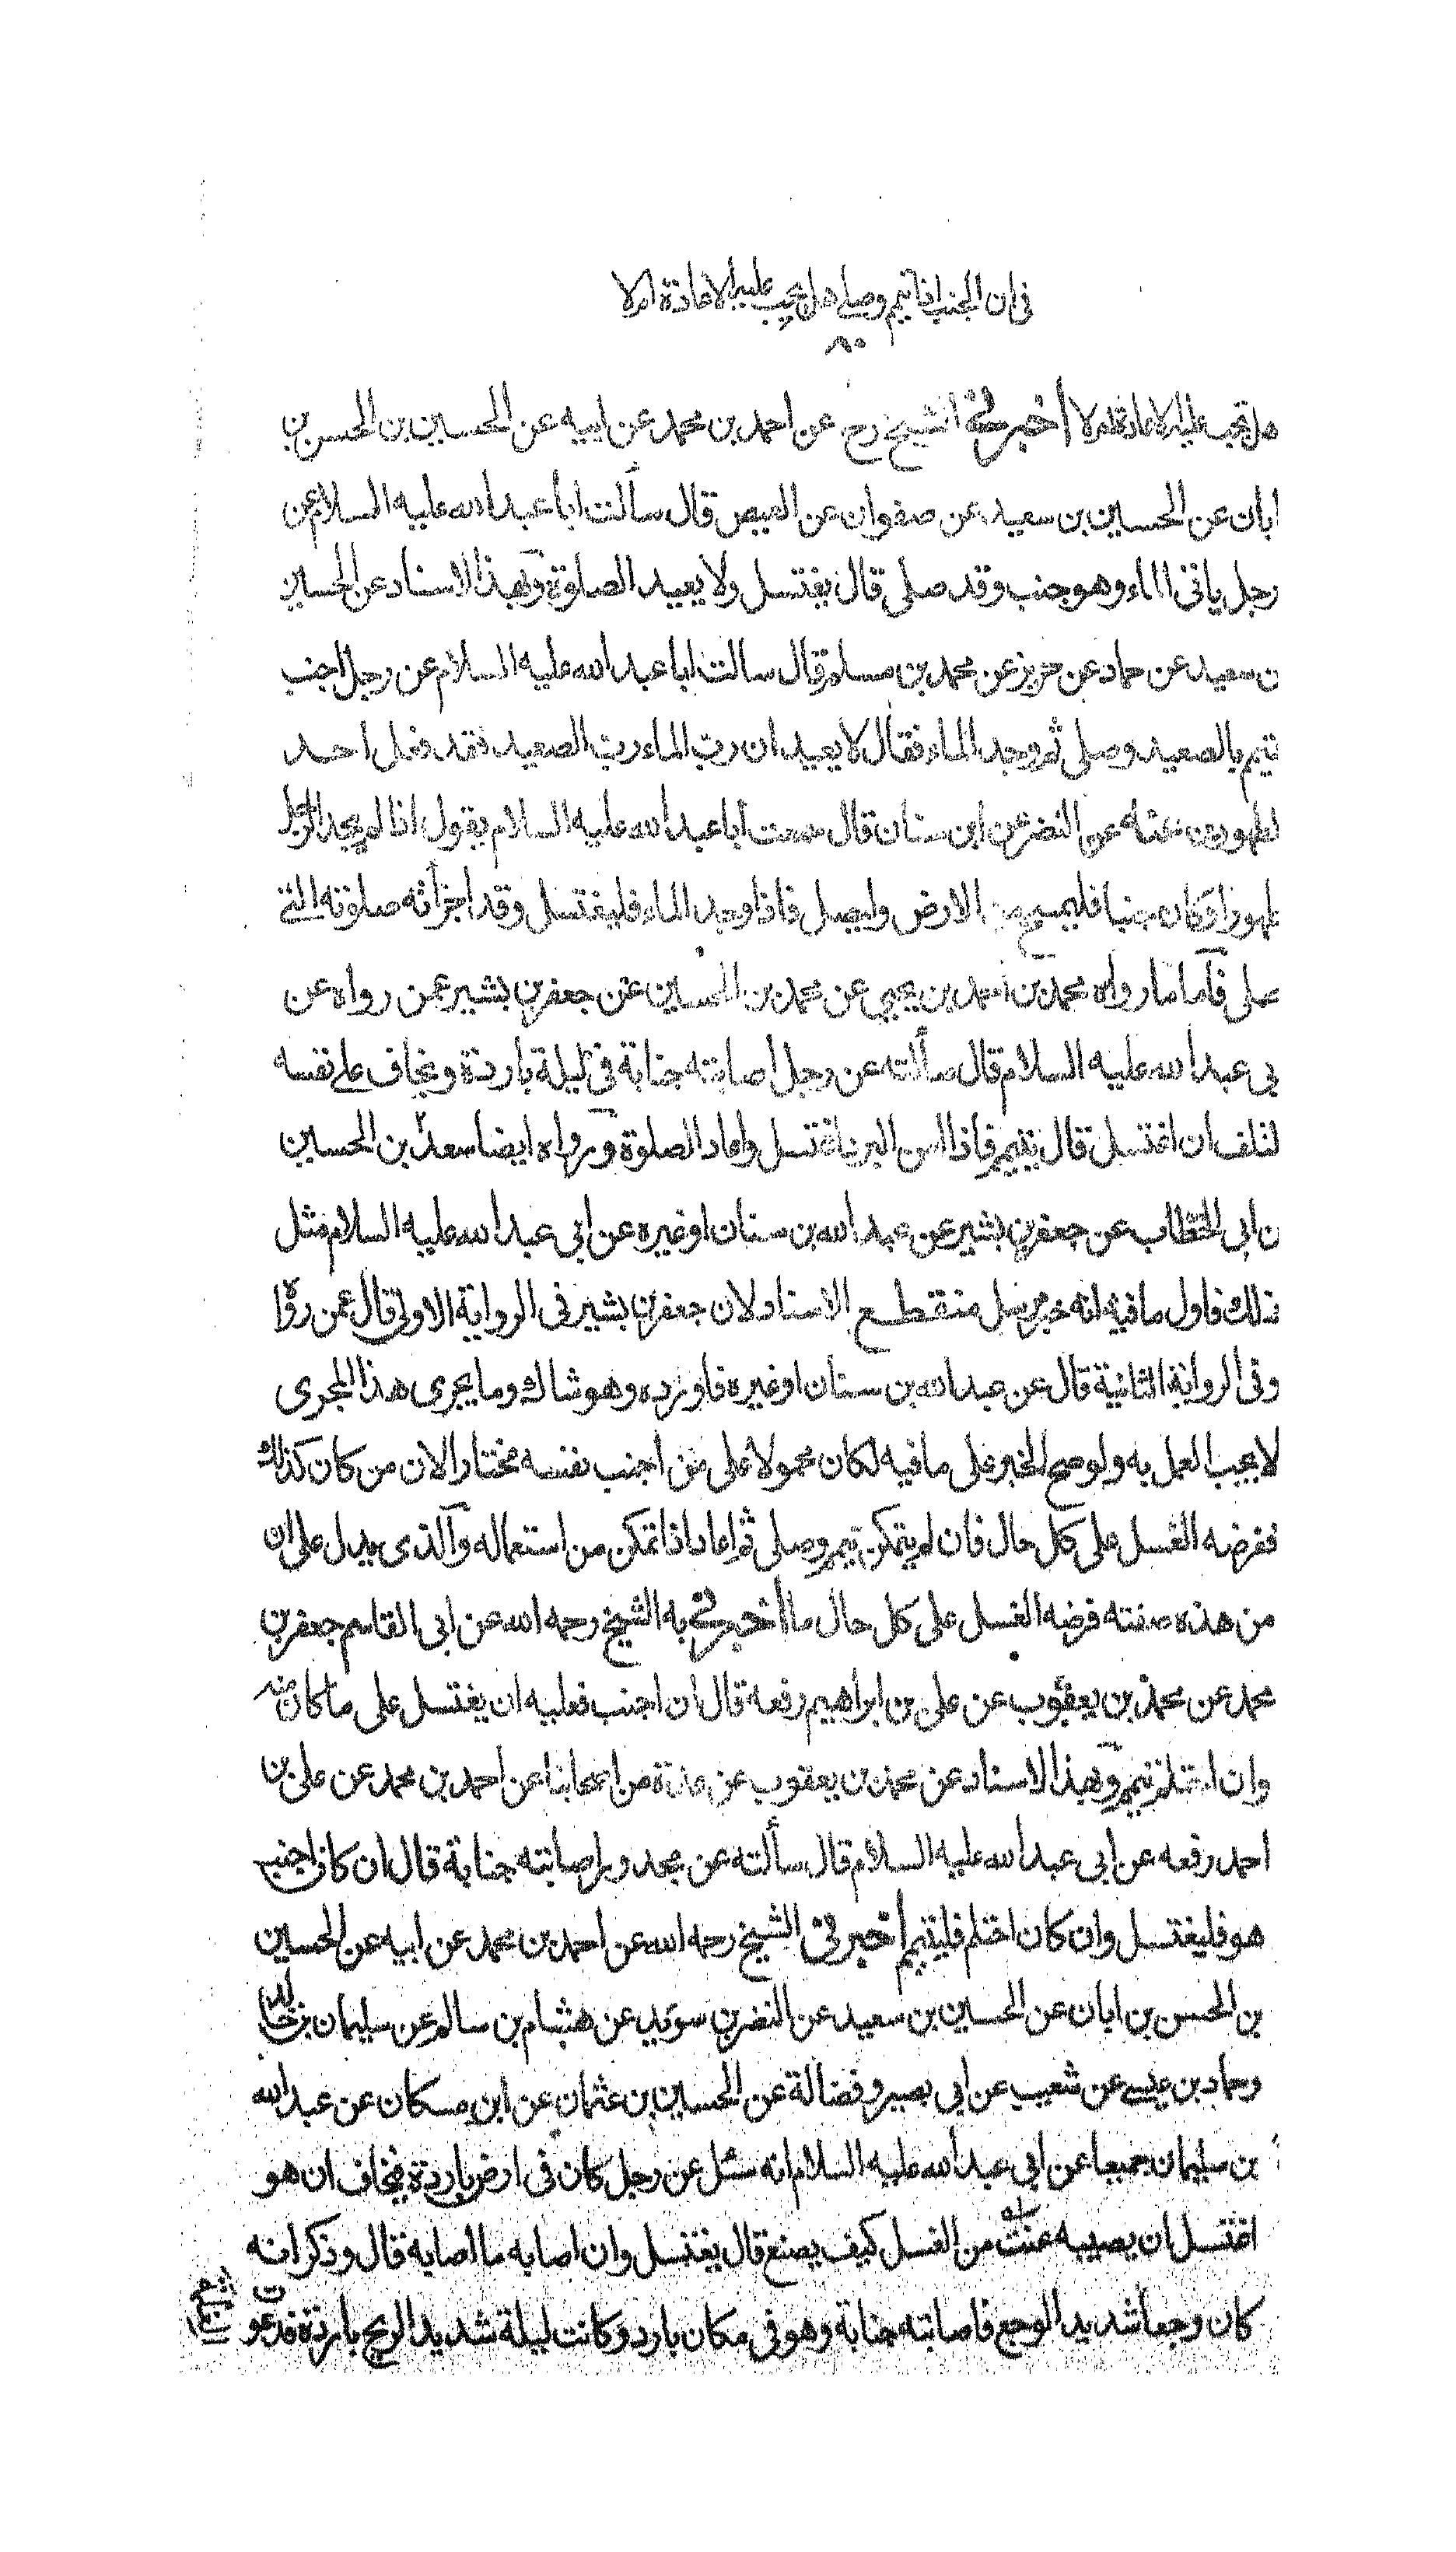 في ان الجنب اذا تيمم وصلى هل يجب عليه الاعادة ام لا
٨٠
هل تجب عليه الاعادة ام لا اخبرني الشيخ رح عن احمد بن محمد عن ابيه عن الحسين بن الحسن بن
ابان عن الحسين بن سعيد عن صفوان عن العيص قال سألت ابا عبد الله عليه السلام عن
رجل ياتى الماء وهو جنب وقد صلى قال يغتسل ولا يعيد الصلوة وبهذا الاسناد عن الحسين
ن سعيد عن حماد عن حريز عن محمد بن مسلم قال سالت ابا عبد الله عليه السلام عن رجل اجنب
فتيمم بالصعيد وصلى ثم وجد الماء فقال لا يعيد ان رب الماء رب الصعيد فقد فعل احد
لطهورين عنه عن النضر عن ابن سنان قال سمعت ابا عبد الله عليه السلام يقول اذا لم يجد الرجل
طهورا وكان جنبا فليمسح من الارض وليصل فاذا وجد الماء فليغتسل وقد اجزأته صلوته التي
صلى فاما ما رواه محمد بن احمد بن يحيى عن محمد بن الحسين عن جعفر بن بشير عمن رواه عن
بي عبد الله عليه السلام قال سألته عن رجل اصابته جنابة في ليلة باردة ويخاف على نفسه
لتلف ان اغتسل قال يتيمم فاذا امن البرد اغتسل واعاد الصلوة ورواه ايضا سعد بن الحسين
ن ابى الخطاب عن جعفر بن بشير عن عبد الله بن سنان او غيره عن ابي عبد الله عليه السلام مثل
ذلك فاول ما فيه انه خبر مرسل منقطع الاسناد لان جعفر بن بشير في الرواية الاولى قال عمن رواه
وفى الرواية الثانية قال عن عبد الله بن سنان او غيره فاورده وهو شاك وما يجرى هذا المجرى
لا يجب العمل به ولو صح الخبر على ما فيه لكان محمولا على من اجنب نفسه مختارا لان من كان كذلك
ففرضه الغسل على كل حال فان لم يتمكن تيمم وصلى ثم اعاد اذا تمكن من استعماله والذى يدل على ان
من هذه صفته فرضه الغسل على كل حال ما اخبرني به الشيخ رحمه الله عن ابى القاسم جعفر بن
محمد عن محمد بن يعقوب عن على بن ابراهيم رفعه قال ان اجنب فعليه ان يغتسل على ما كان
وان احتلم تيمم وبهذا الاسناد عن محمد بن يعقوب عن عدة من اصحابنا عن احمد بن محمد عن على بن
احمد رفعه عن ابى عبد الله عليه السلام قال سألته عن مجدور اصابته جنابة قال ان كان اجنب
هو فليغتسل وان كان احتلم فليتيمم اخبرنى الشيخ رحمه الله عن احمد بن محمد عن ابيه عن الحسين
بن الحسن بن ابان عن الحسين بن سعيد عن النضر بن سويد عن هشام بن سالم عن سليمان بن خالد
وحماد بن عيسى عن شعيب عن ابى بصير وفضالة عن الحسين بن عثمان عن ابن مسكان عن عبد الله
بن سليمان جميعا عن ابى عبد الله عليه السلام انه سئل عن رجل كان فى ارض باردة فيخاف ان هو
اغتسل ان يصيبه عنت من الغسل كيف يصنع قال يغتسل وان اصابه ما اصابه قال وذكر انه
كان وجعا شديد الوجع فاصابته جنابة وهو فى مكان بارد وكانت ليلة شديد الريح باردة فدعوت